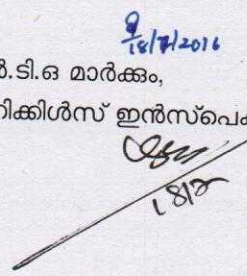 18/7/2016
ർ.ടി.ഒ മാർക്കും,
നിക്കിൾസ് ഇൻസ്പെക
18/7